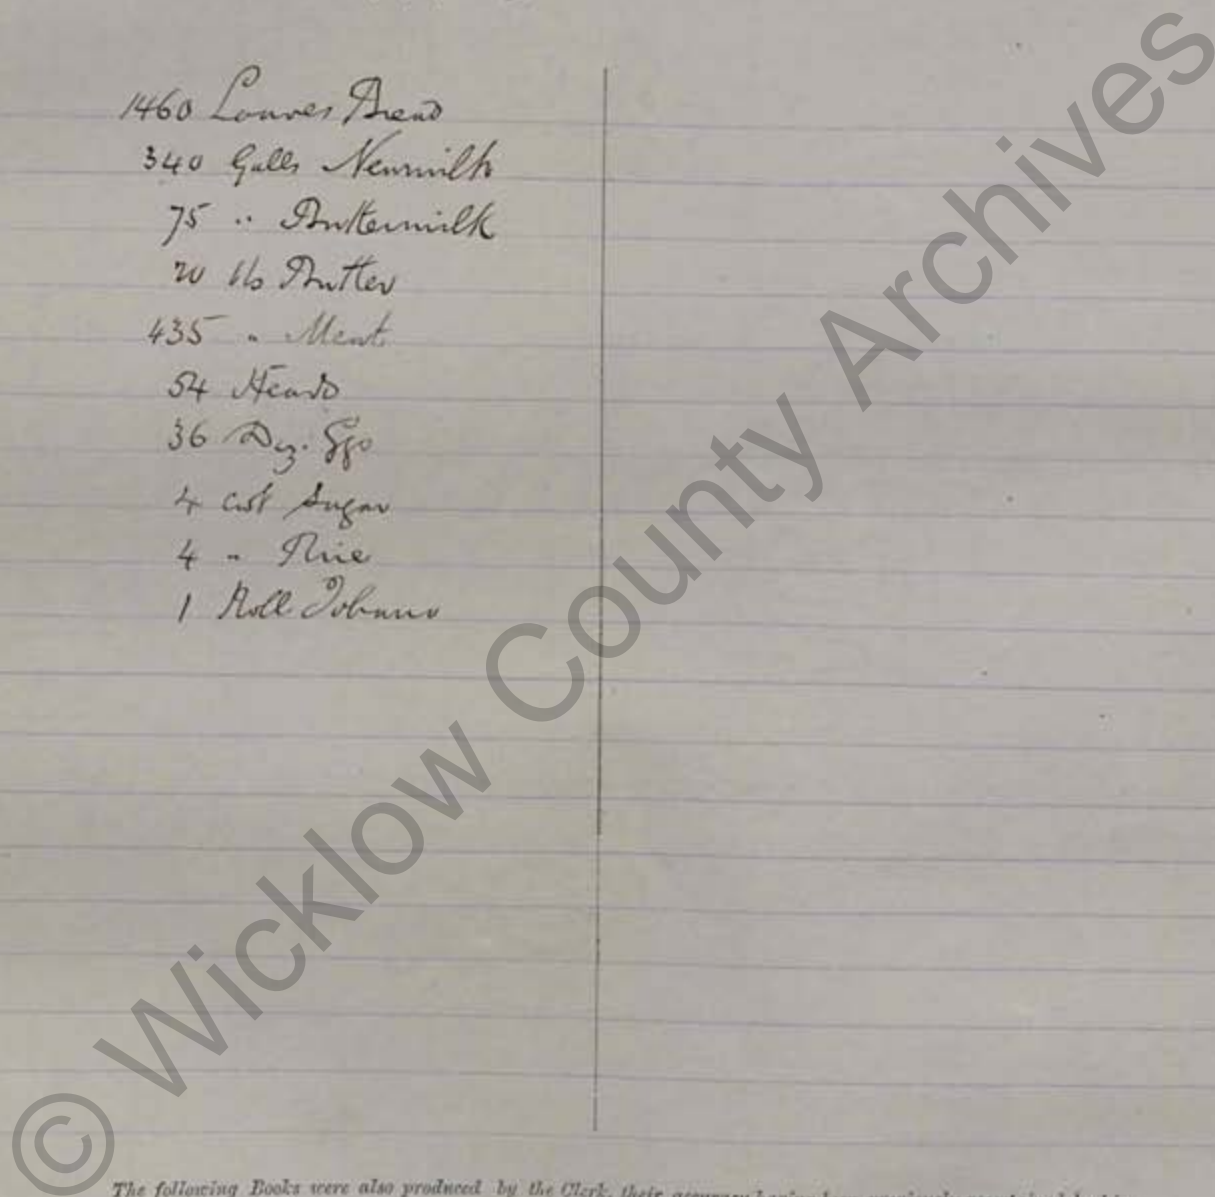 1460 Loaves Bread
340 Galls Newmilk
75 " Buttermilk
20 lb Butter
435 " Meat
54 Heads
36 Doz. Eggs
4 cwt Sugar
4 " Rice
1 Roll Tobacco
The following Books were also produced by the Clerk, their accuracy having been previously
© Wicklow County Archives